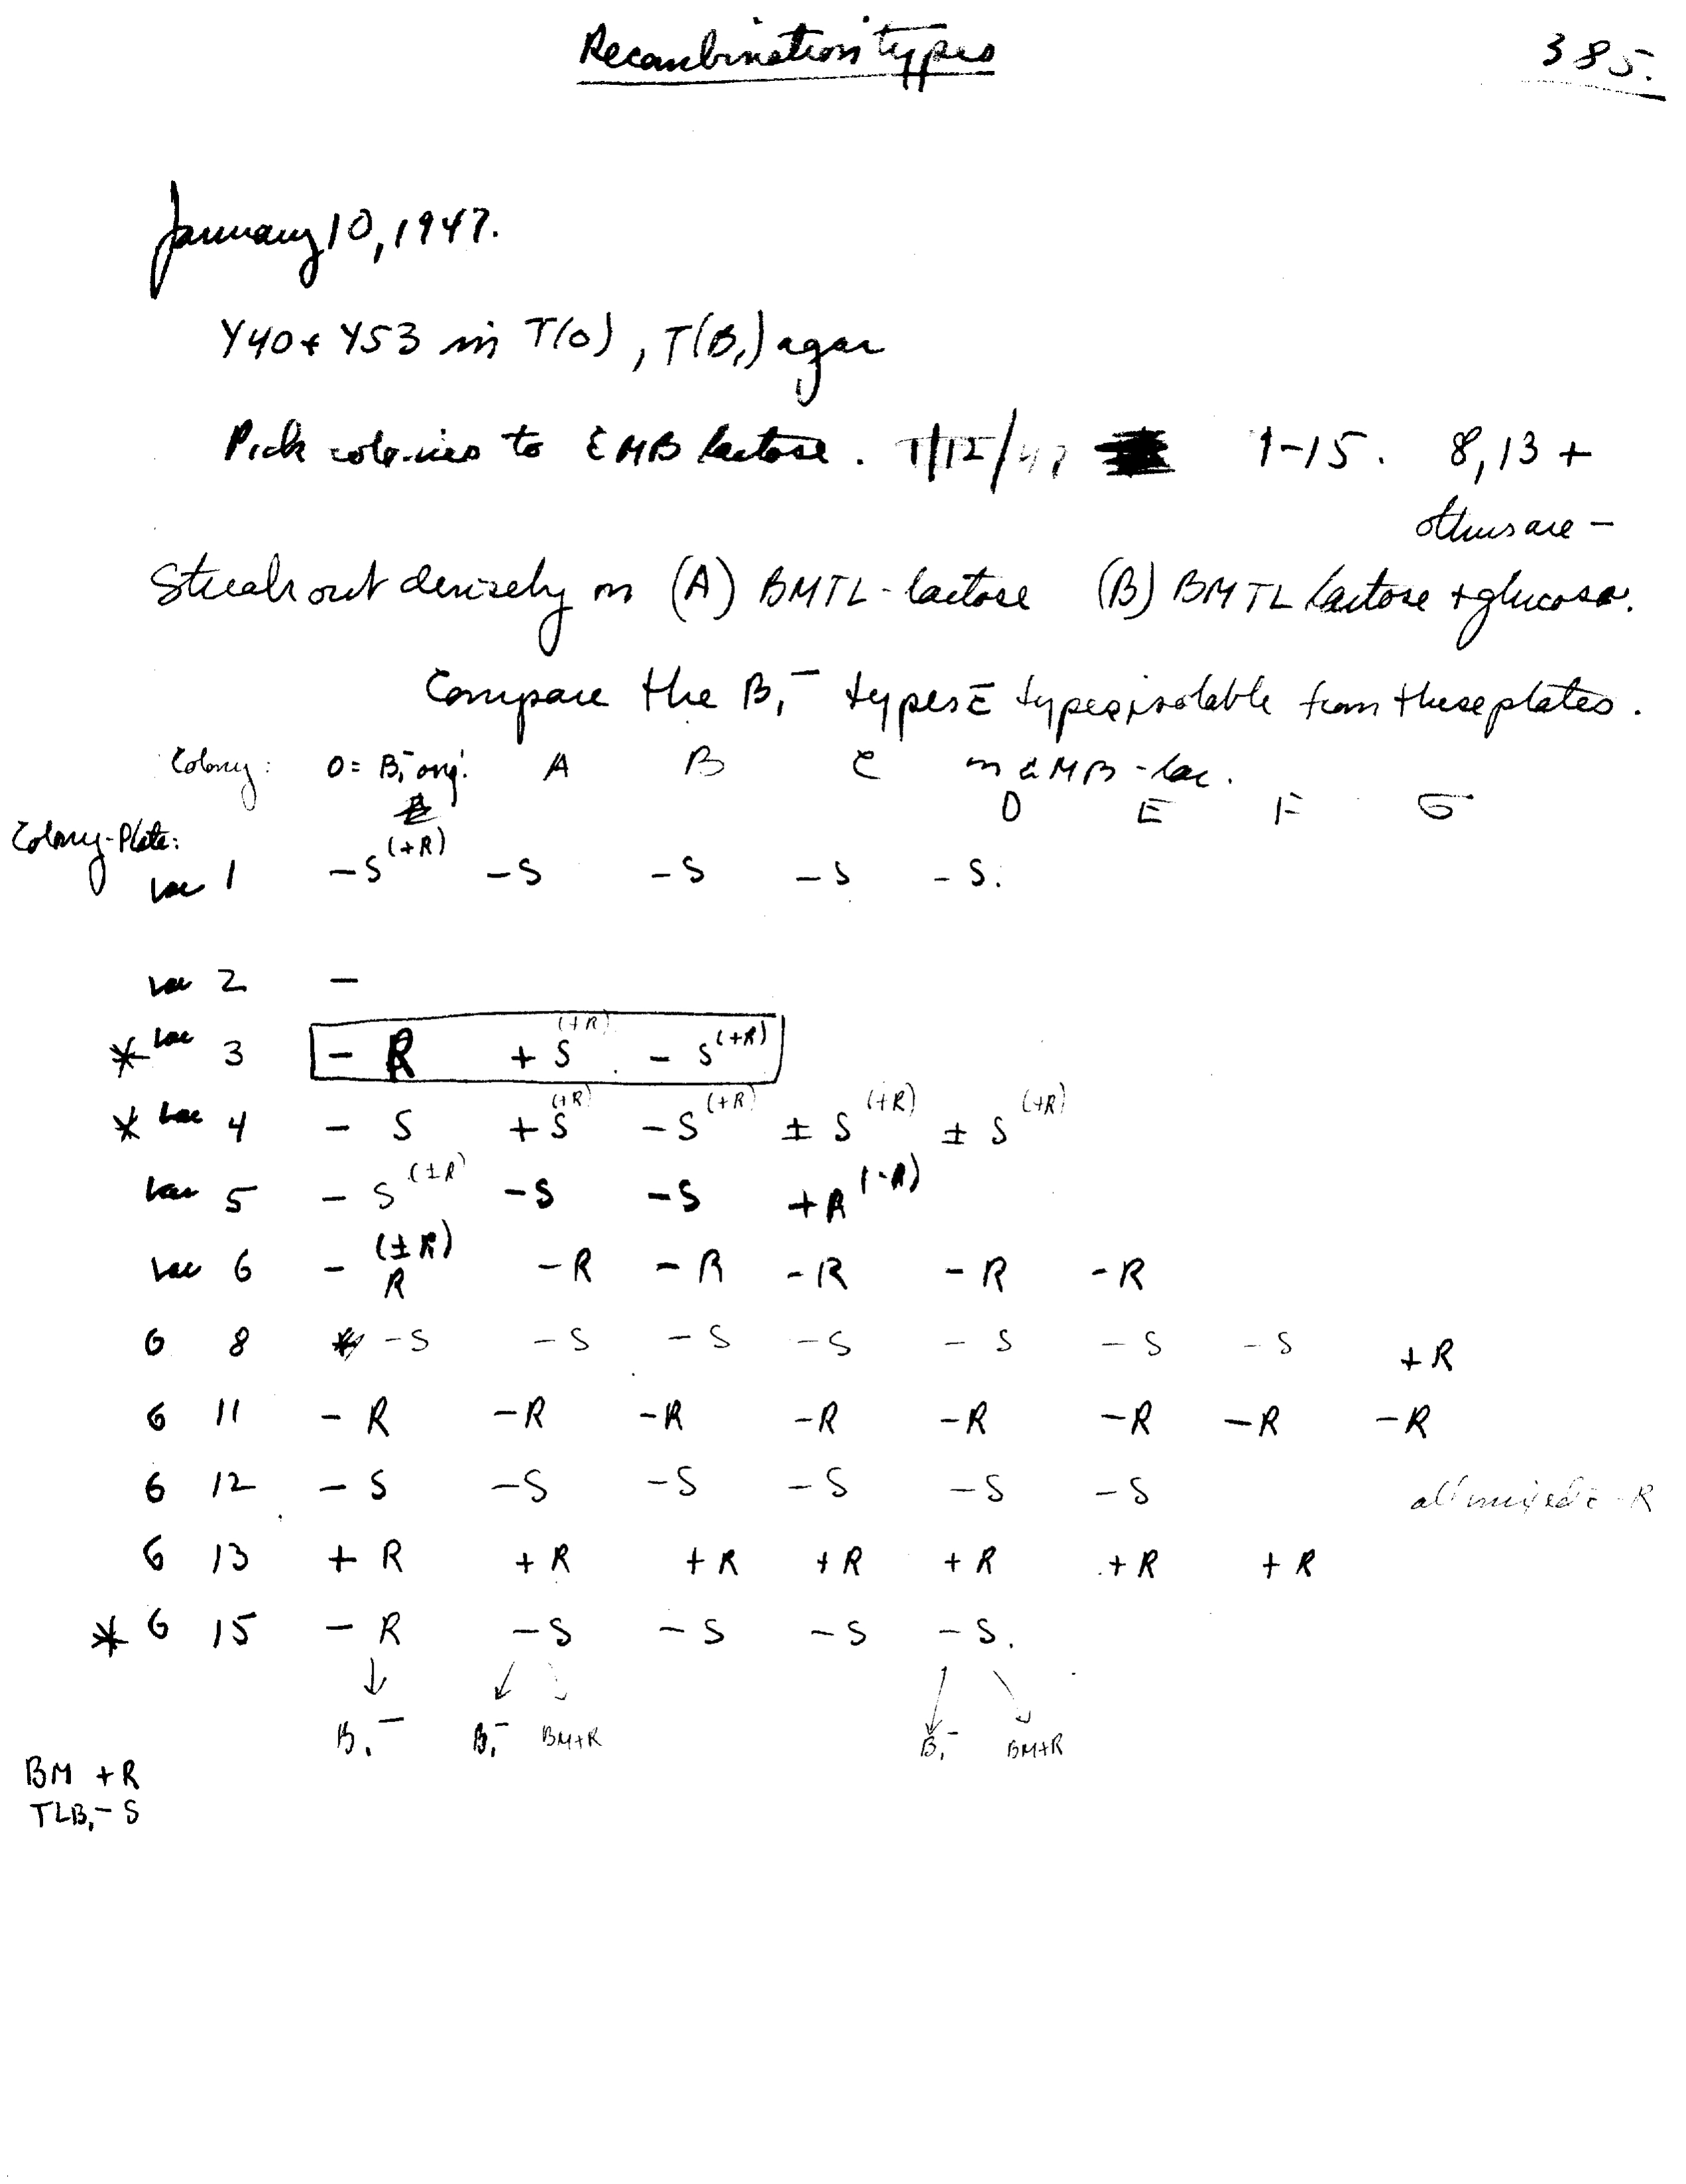 Recombination types 385.
January 10, 1947.
Y40 + Y53 in T(0), T(B₁) agar
Pick colonies to EMB lactose. 1/12/47 1-15. 8, 13 +
others are -
Streak out densely on (A) BMTL-lactose (B) BMTL lactose + glucose.
Compare the B₁⁻ types c̄ types isolable from these plates.
Colony: 0 = B₁⁻ orig. A B C on EMB-lac.
D E F G
Colony-Plate:
Lac 1 -S(+R) -S -S -S -S.
Lac 2 -
* Lac 3 - R + S(+R) - S(+R)
* Lac 4 - S +S(+R) -S(+R) ± S(+R) ± S(+R)
Lac 5 - S(±R) -S -S +R(-R)
Lac 6 - R(±R) -R -R -R -R -R
G 8 -S -S -S -S -S -S -S +R
G 11 -R -R -R -R -R -R -R -R
G 12 -S -S -S -S -S -S all mixed c̄ -R
G 13 +R +R +R +R +R +R +R
* G 15 -R -S -S -S -S.
↓ ↙ ↘ ↙ ↘
B₁⁻ B₁⁻ BM+R B₁⁻ BM+R
BM +R
TLB₁- S